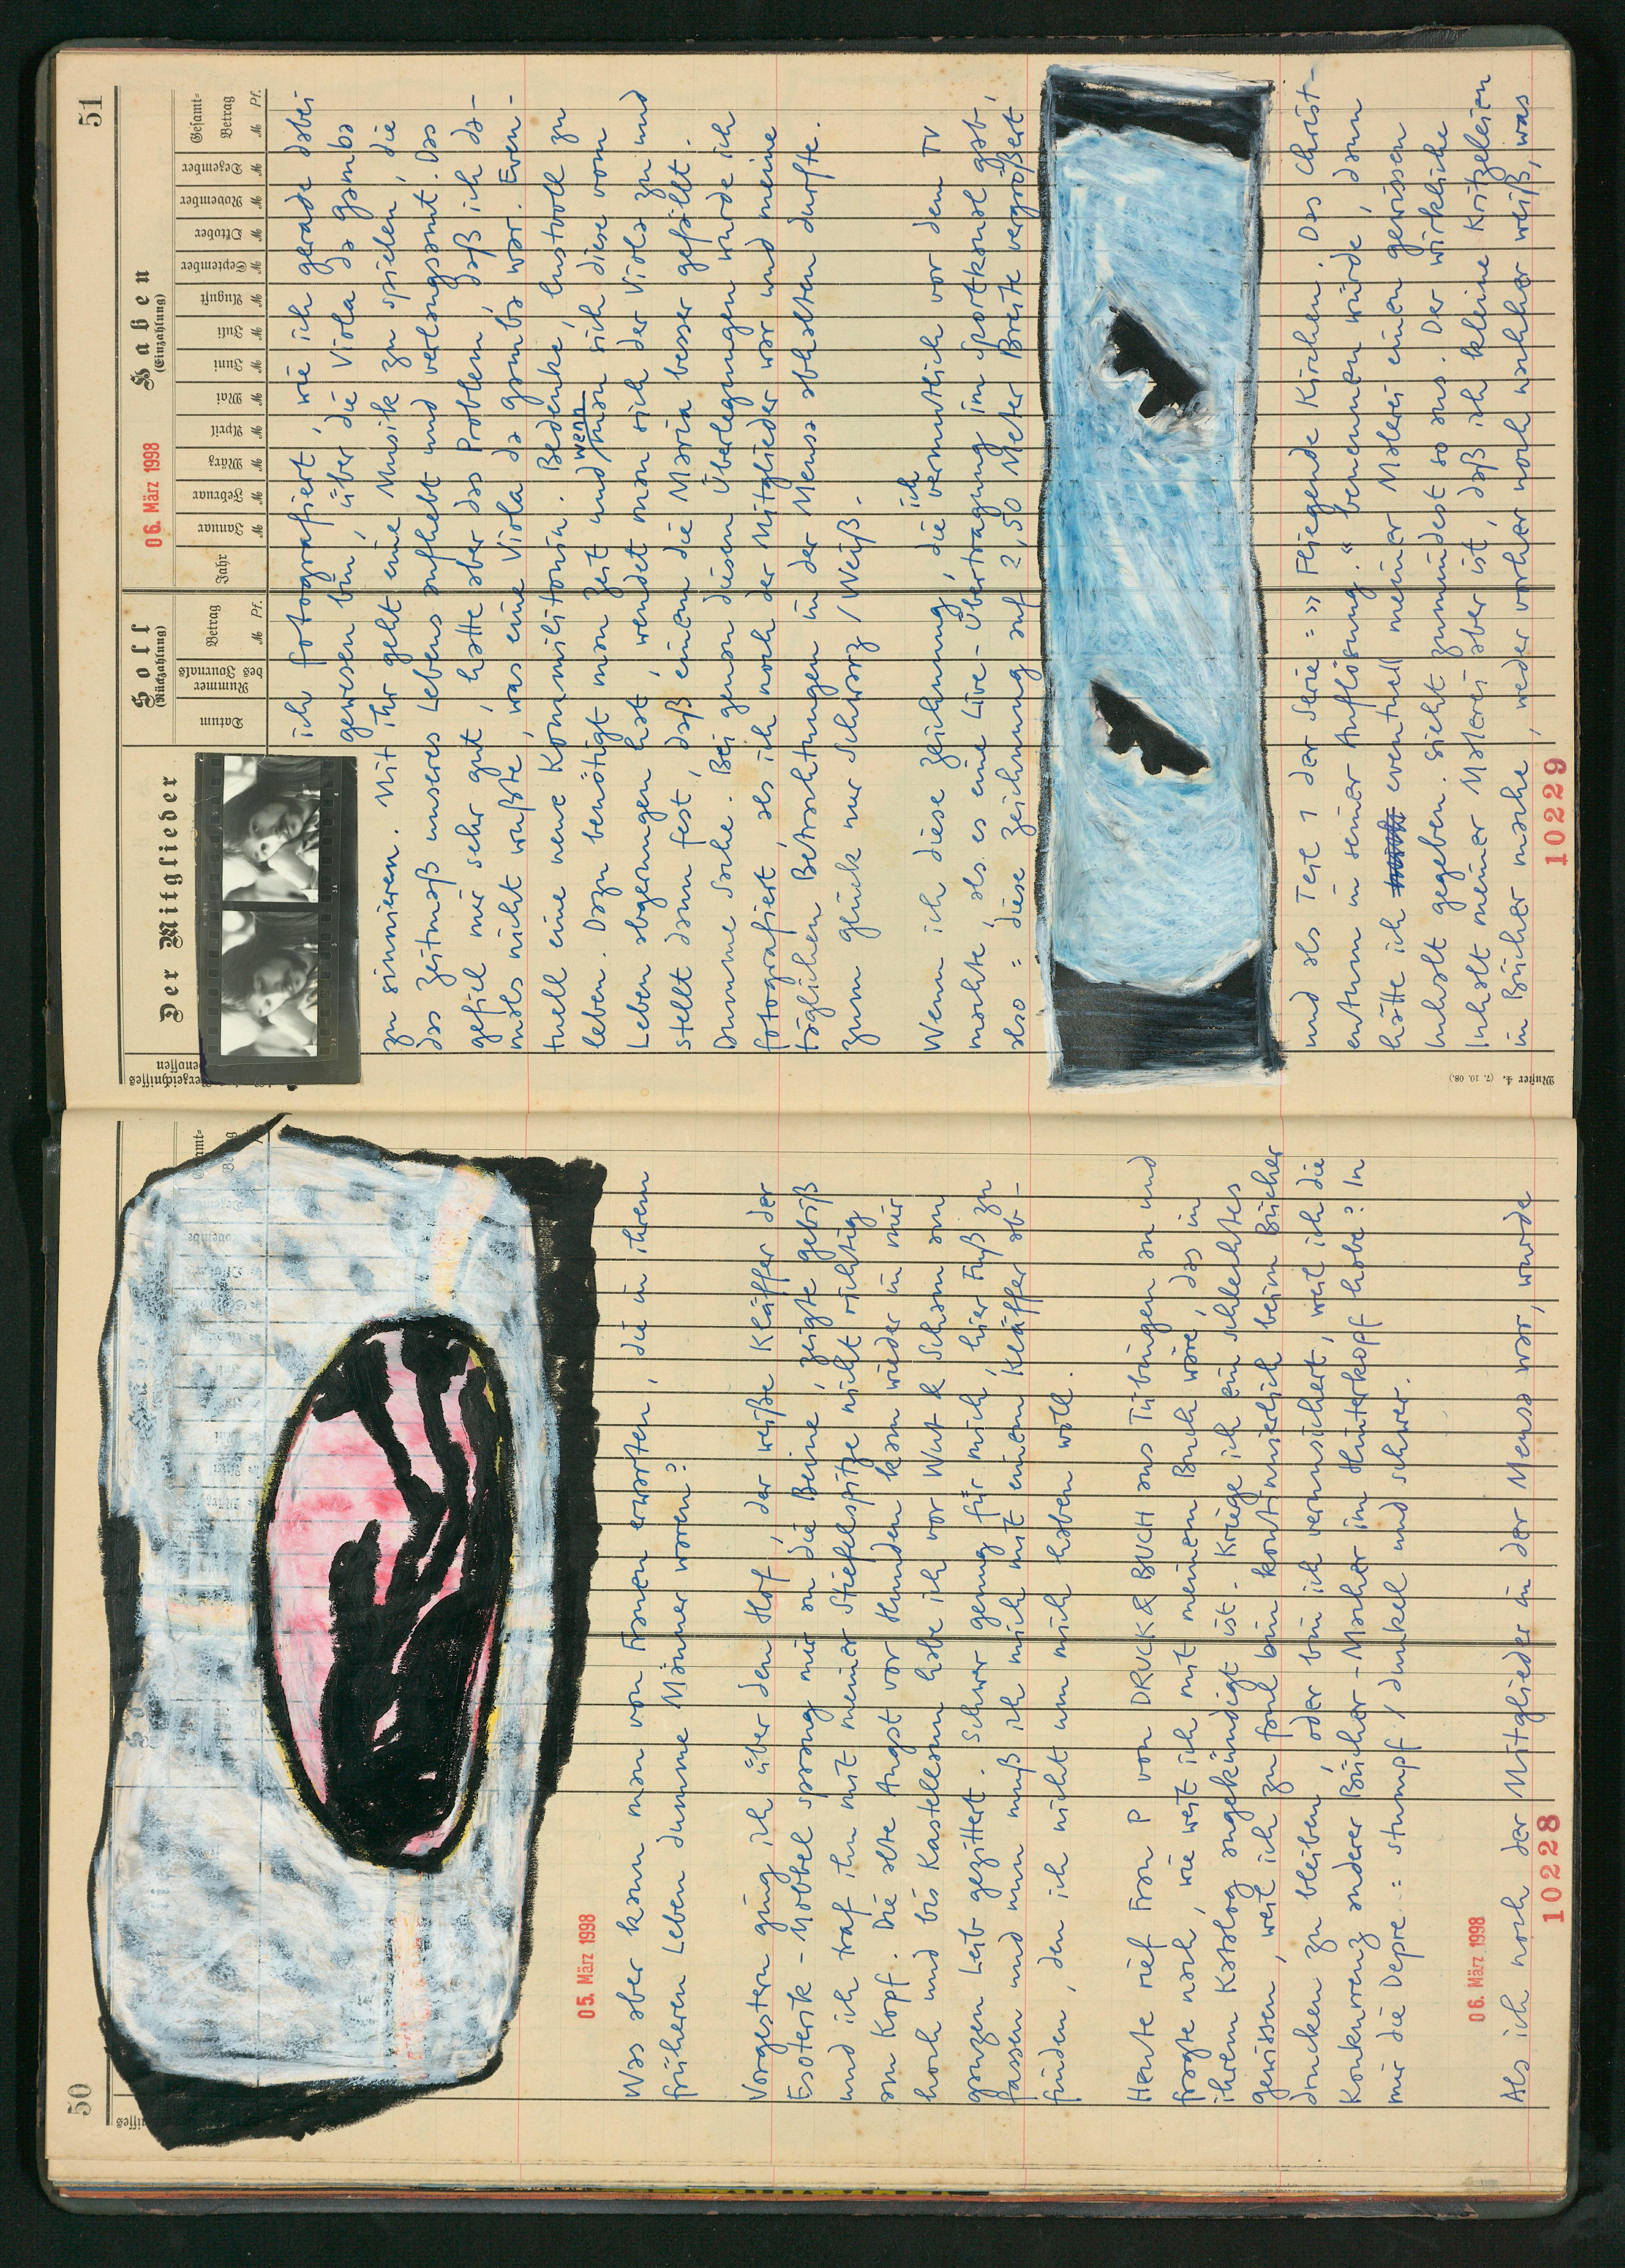 50
05. März 1998
Was aber kann man von Frauen erwarten, die in ihrem
früheren Leben dumme Männer waren?
Vorgestern ging ich über den Hof, der weiße Kläffer der
Esoterik-Mobbel sprang mir an die Beine, zeigte Gebiß
und ich traf ihn mit meiner Stiefelspitze nicht richtig
am Kopf. Die alte Angst vor Hunden kam wieder in mir
hoch und bis Kastellaun habe ich vor Wut & Scham am
ganzen Leib gezittert. Schwer genug für mich, hier Fuß zu
fassen und nun muß ich mich mit einem Kläffer ab-
finden, den ich nicht um mich haben will.
Heute rief Frau P von DRUCK & BUCH aus Tübingen an und
fragte nach, wie weit ich mit meinem Buch wäre, das in
ihrem Katalog angekündigt ist. Kriege ich ein schlechtes
Gewissen, weil ich zu faul bin kontinuierlich beim Bücher
drucken zu bleiben, oder bin ich verunsichert, weil ich die
Konkurrenz anderer Bücher-Macher im Hinterkopf habe? In
mir die Depre..: stumpf / dunkel und schwer.
06. März 1998
Als ich noch der Mitglieder in der Mensa war, wurde
10228
51
Der Mitglieder
Soll
(Rückzahlung)
Haben
(Einzahlung)
06. März 1998
Verzeichnisses
Datum
Nummer
des Journals
Betrag
M Pf.
Jahr
Januar
M
Februar
M
März
M
April
M
Mai
M
Juni
M
Juli
M
August
M
September
M
Oktober
M
November
M
Dezember
M
Gesamt-
Betrag
M Pf.
ich fotografiert, wie ich gerade dabei
gewesen bin, über die Viola da gamba
zu sinnieren. Mit ihr geht eine Musik zu spielen, die
das Zeitmaß unseres Lebens aufhebt und verlangsamt. Das
gefiel mir sehr gut, hatte aber das Problem, daß ich da-
mals nicht wußte, was eine Viola da gamba war. Even-
tuell eine neue Kommilitonin. Bedenke, lustvoll zu
leben. Dazu benötigt man Zeit und wenn man sich diese vom
Leben abgerungen hat, wendet man sich der Viola zu und
stellt dann fest, daß einem die Maria besser gefällt.
Dumme Sache. Bei genau diesen Überlegungen wurde ich
fotografiert, als ich noch der Mitglieder war und meine
täglichen Betrachtungen in der Mensa abhalten durfte.
Zum Glück nur Schwarz / Weiß.
Wenn ich diese Zeichnung, die ich vermutlich vor dem TV
machte, als es eine Live-Übertragung im Sportkanal gab,
also: diese Zeichnung auf 2,50 Meter Breite vergrößert
und als Teil 1 der Serie: » Fliegende Kirchen. Das Christ-
entum in seiner Auflösung. « benennen würde, dann
hätte ich eventuell meiner Malerei einen gewissen
Inhalt gegeben. Sieht zumindest so aus. Der wirkliche
Inhalt meiner Malerei aber ist, daß ich kleine Kritzeleien
in Bücher mache, weder vorher noch nachher weiß, was
Muster 4. (7. 10. 08.)
10229